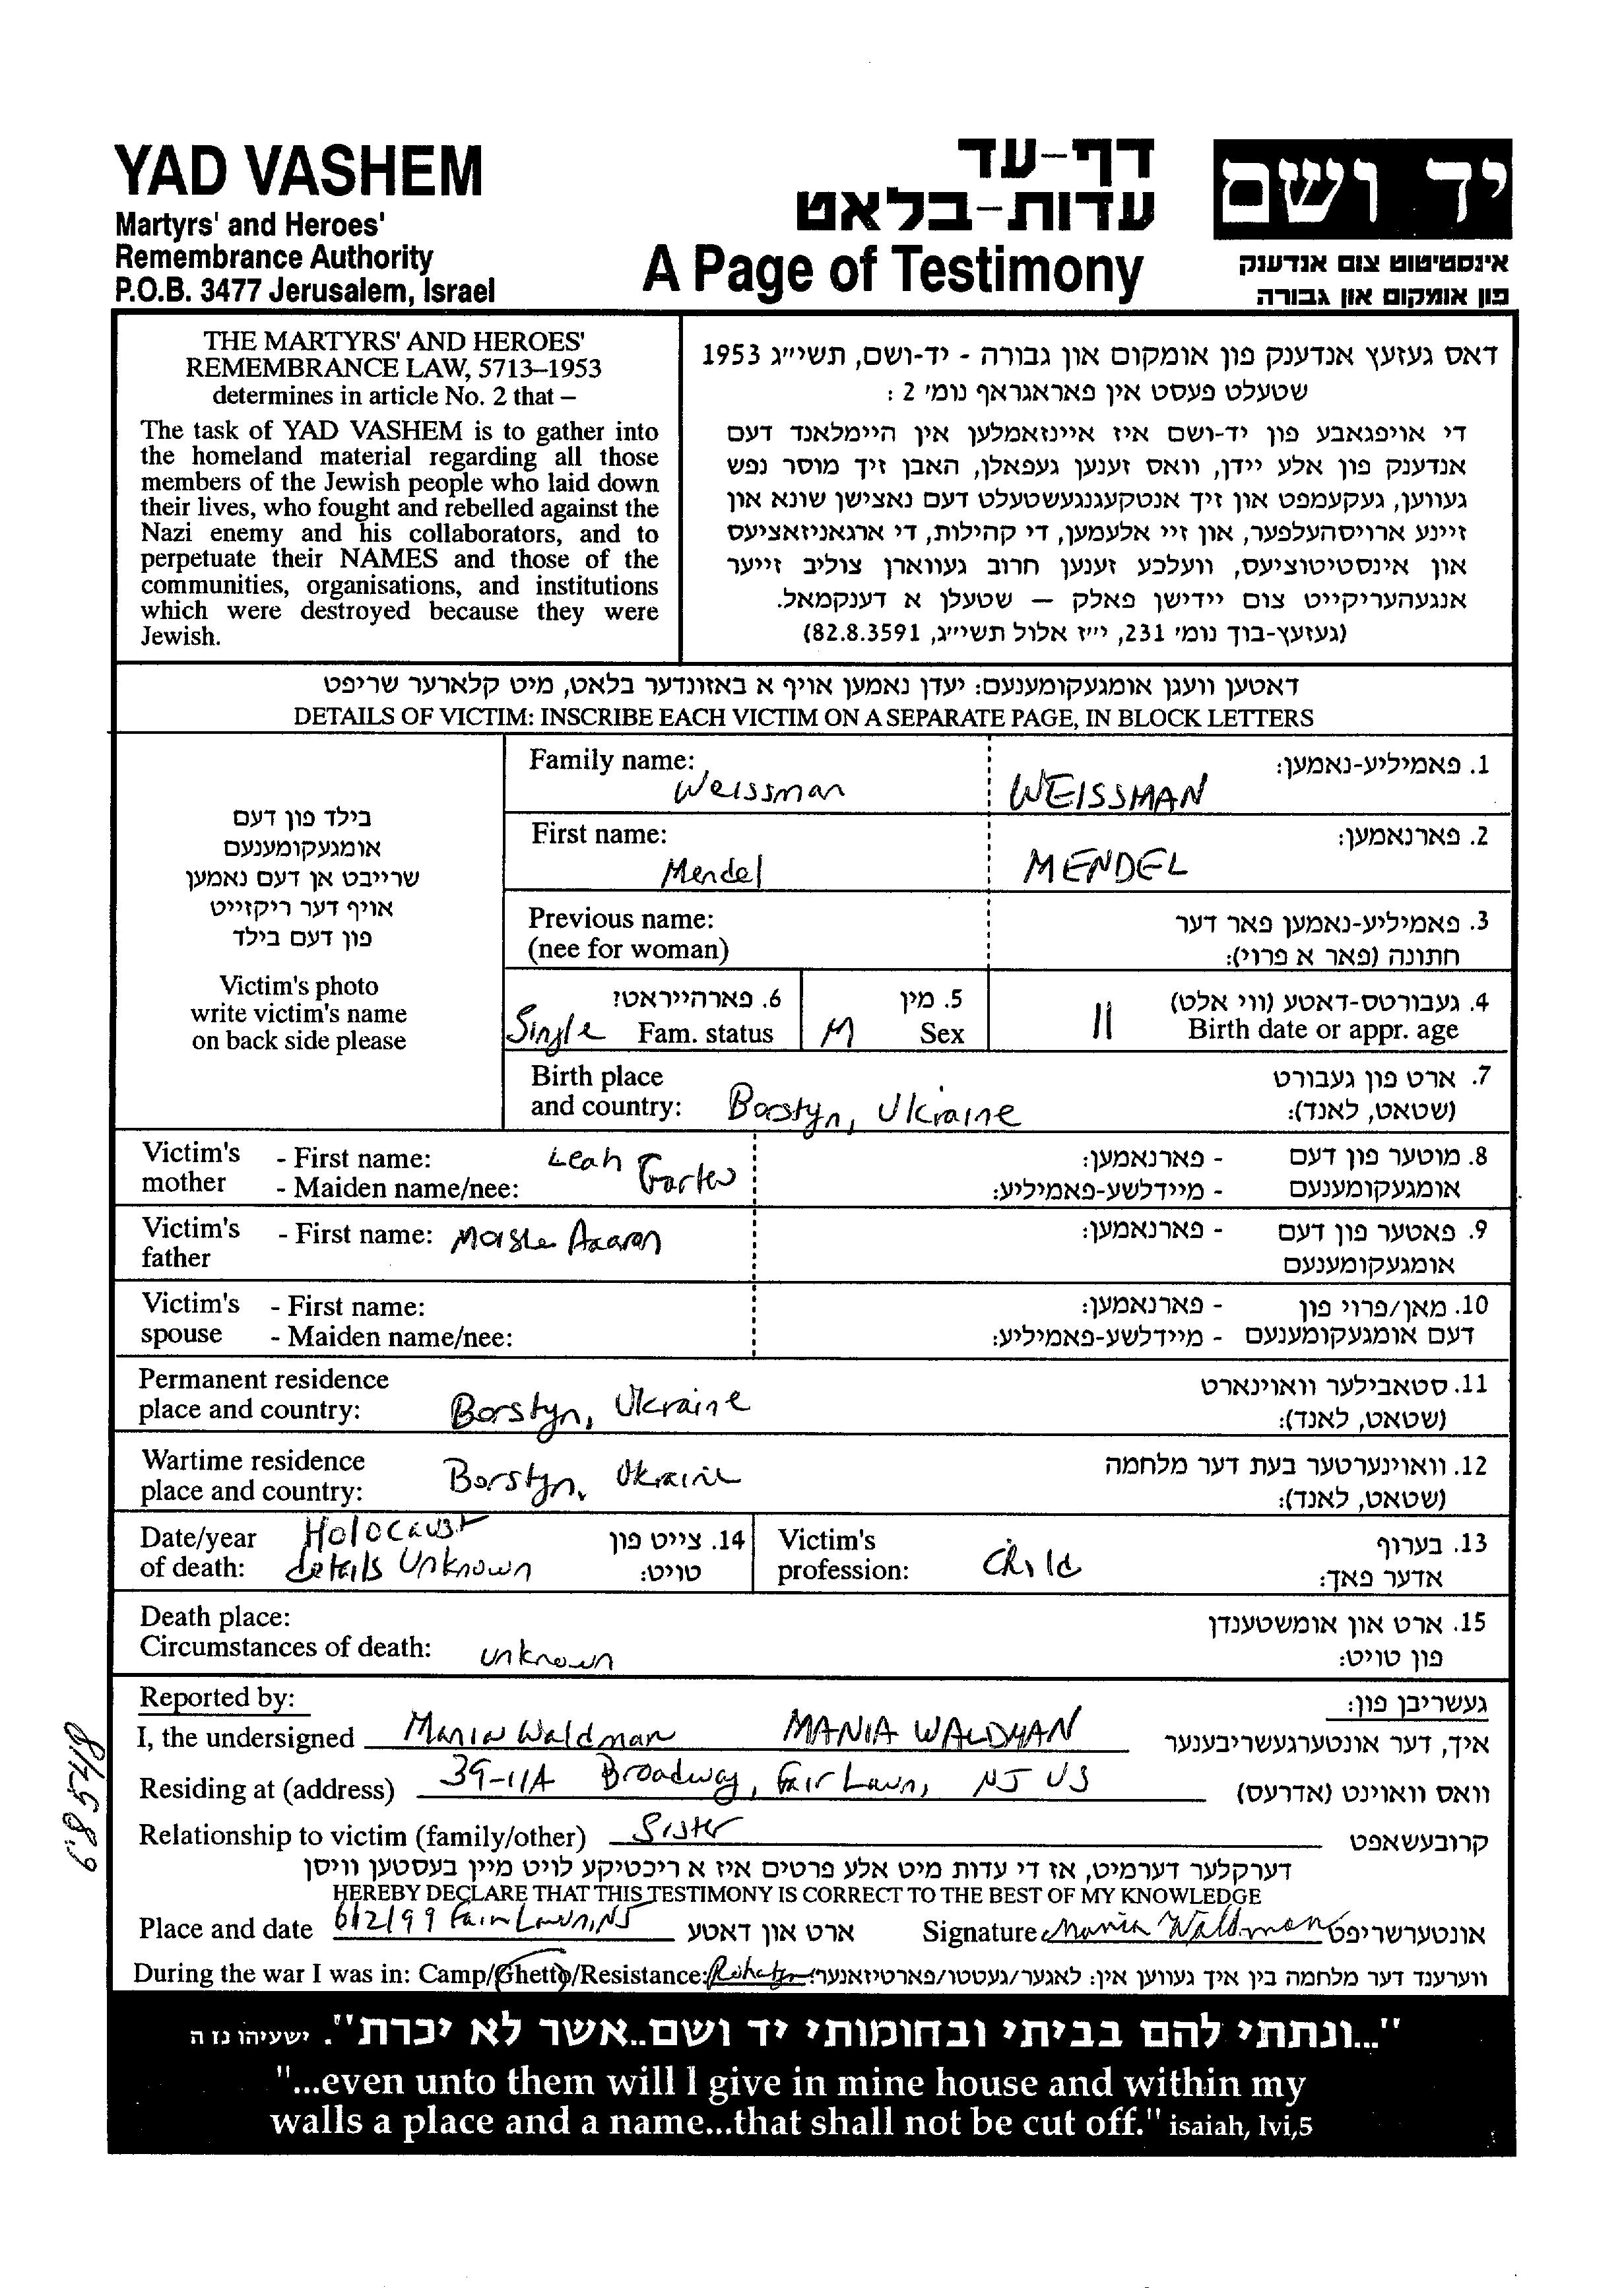 YAD VASHEM
Martyrs' and Heroes'
Remembrance Authority
P.O.B. 3477 Jerusalem, Israel
דף-עד
עדות-בלאט
A Page of Testimony
יד ושם
אינסטיטוט צום אנדענק
פון אומקום און גבורה
THE MARTYRS' AND HEROES'
REMEMBRANCE LAW, 5713–1953
determines in article No. 2 that –
The task of YAD VASHEM is to gather into
the homeland material regarding all those
members of the Jewish people who laid down
their lives, who fought and rebelled against the
Nazi enemy and his collaborators, and to
perpetuate their NAMES and those of the
communities, organisations, and institutions
which were destroyed because they were
Jewish.
דאס געזעץ אנדענק פון אומקום און גבורה - יד-ושם, תשי״ג 1953
שטעלט פעסט אין פאראגראף נומ׳ 2 :
די אויפגאבע פון יד-ושם איז איינזאמלען אין היימלאנד דעם
אנדענק פון אלע יידן, וואס זענען געפאלן, האבן זיך מוסר נפש
געווען, געקעמפט און זיך אנטקעגנגעשטעלט דעם נאצישן שונא און
זיינע ארויסהעלפער, און זיי אלעמען, די קהילות, די ארגאניזאציעס
און אינסטיטוציעס, וועלכע זענען חרוב געווארן צוליב זייער
אנגעהעריקייט צום יידישן פאלק – שטעלן א דענקמאל.
(געזעץ-בוך נומ׳ 231, י״ז אלול תשי״ג, 82.8.3591)
דאטען וועגן אומגעקומענעם: יעדן נאמען אויף א באזונדער בלאט, מיט קלארער שריפט
DETAILS OF VICTIM: INSCRIBE EACH VICTIM ON A SEPARATE PAGE, IN BLOCK LETTERS
בילד פון דעם
אומגעקומענעם
שרייבט אן דעם נאמען
אויף דער ריקזייט
פון דעם בילד
Victim's photo
write victim's name
on back side please
Family name: Weissman WEISSMAN 1. פאמיליע-נאמען:
First name: Mendel MENDEL 2. פארנאמען:
Previous name: 3. פאמיליע-נאמען פאר דער
(nee for woman) חתונה (פאר א פרוי):
6. פארהייראט? 5. מין 4. געבורטס-דאטע (ווי אלט)
Single Fam. status M Sex 11 Birth date or appr. age
Birth place 7. ארט פון געבורט
and country: Borstyn, Ukraine (שטאט, לאנד):
Victim's - First name: Leah - פארנאמען: 8. מוטער פון דעם
mother - Maiden name/nee: - מיידלשע-פאמיליע: אומגעקומענעם
Victim's - First name: Moishe Aaron - פארנאמען: 9. פאטער פון דעם
father אומגעקומענעם
Victim's - First name: - פארנאמען: 10. מאן/פרוי פון
spouse - Maiden name/nee: - מיידלשע-פאמיליע: דעם אומגעקומענעם
Permanent residence 11. סטאבילער וואוינארט
place and country: Borstyn, Ukraine (שטאט, לאנד):
Wartime residence 12. וואוינערטער בעת דער מלחמה
place and country: Borstyn, Ukraine (שטאט, לאנד):
Date/year Holocaust 14. צייט פון Victim's 13. בערוף
of death: details Unknown טויט: profession: Child אדער פאך:
Death place: 15. ארט און אומשטענדן
Circumstances of death: unknown פון טויט:
Reported by: געשריבן פון:
I, the undersigned Mania Waldman MANIA WALDMAN איך, דער אונטערגעשריבענער
Residing at (address) 39-11A Broadway, Fair Lawn, NJ US וואס וואוינט (אדרעס)
Relationship to victim (family/other) Sister קרובעשאפט
דערקלער דערמיט, אז די עדות מיט אלע פרטים איז א ריכטיקע לויט מיין בעסטען וויסן
HEREBY DECLARE THAT THIS TESTIMONY IS CORRECT TO THE BEST OF MY KNOWLEDGE
Place and date 6/2/99 Fair Lawn, NJ ארט און דאטע Signature Mania Waldman אונטערשריפט
During the war I was in: Camp/Ghetto/Resistance: ווערענד דער מלחמה בין איך געווען אין: לאגער/געטטו/פארטיזאנער:
"...ונתתי להם בביתי ובחומותי יד ושם..אשר לא יכרת". ישעיהו נז ה
"...even unto them will I give in mine house and within my
walls a place and a name...that shall not be cut off." isaiah, lvi,5